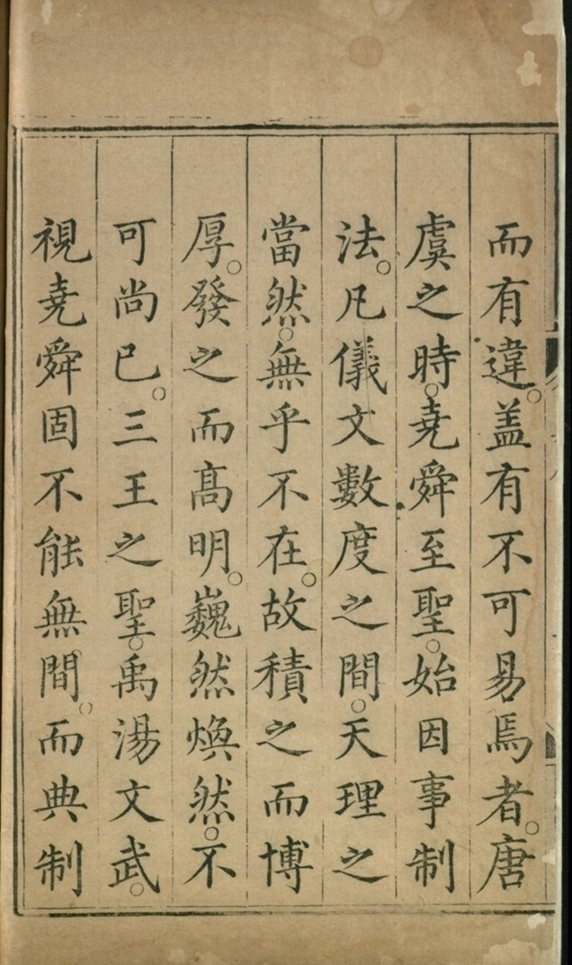 而有違。盖有不可易焉者。唐
虞之時。堯舜至聖。始因事制
法。凡儀文數度之間。天理之
當然。無乎不在。故積之而博
厚。發之而髙明。巍然煥然。不
可尚已。三王之聖。禹湯文武。
視堯舜固不能無間。而典制